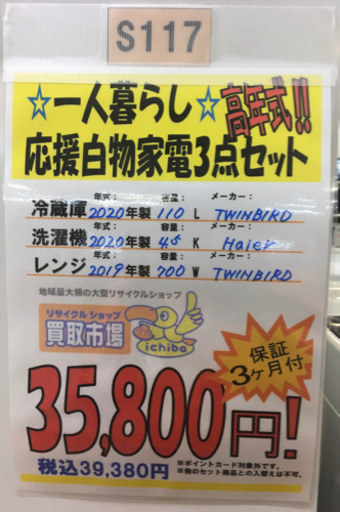 S117
☆一人暮らし☆高年式!!
応援白物家電3点セット
年式： 容量： メーカー：
冷蔵庫 2020年製 110 L TWINBIRD
年式： 容量： メーカー：
洗濯機 2020年製 4.5 K Haier
年式： 容量： メーカー：
レンジ 2019年製 700 W TWINBIRD
地域最大級の大型リサイクルショップ
リサイクルショップ
買取市場
ichiba
保証
3ヶ月付
35,800円!
税込39,380円
※ポイントカード対象外です。
※他のセット商品との入替えは不可。